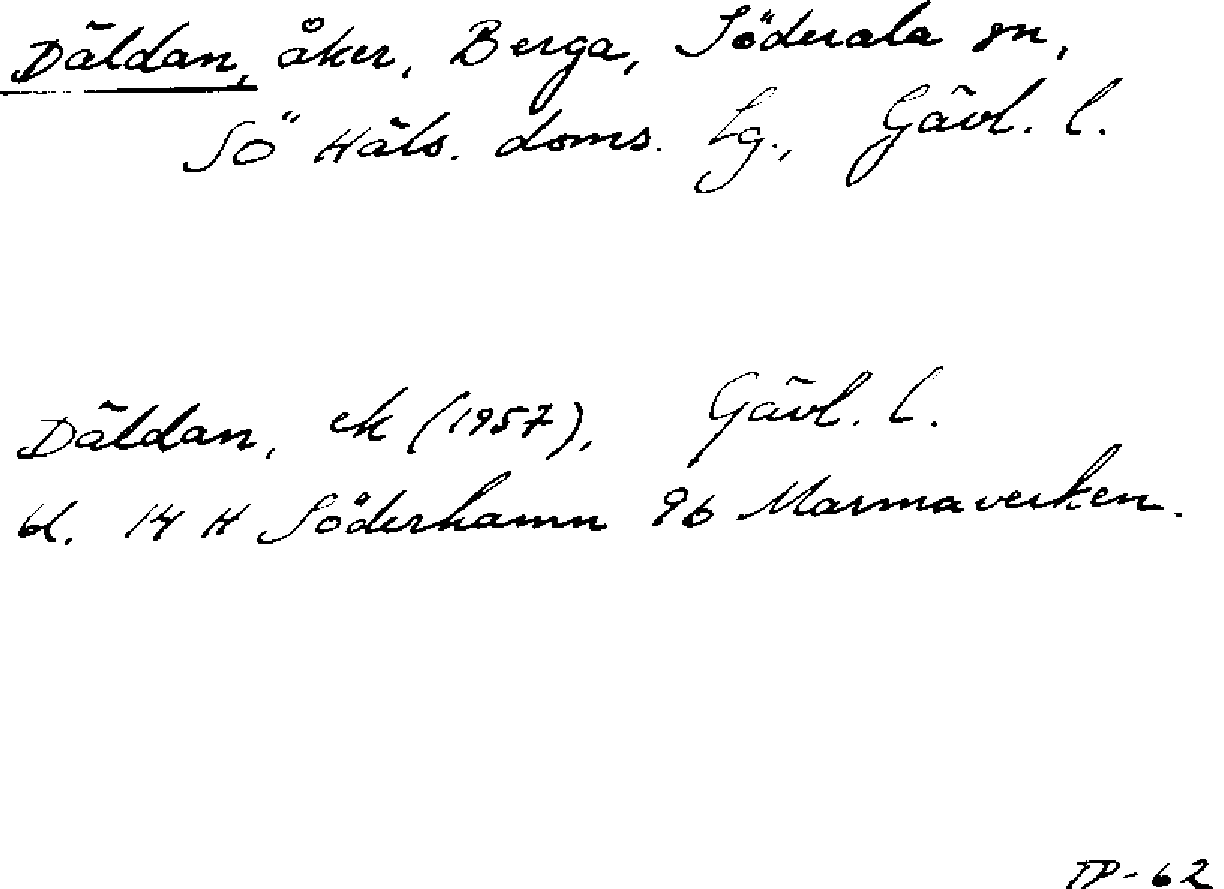 Däldan, åker, Berga, Söderala sn,
Sö Häls. doms. lg., Gävl. l.
Däldan, ek (1957), Gävl. l.
bl. 14 H Söderhamn 9b Marmaverken.
TP-62